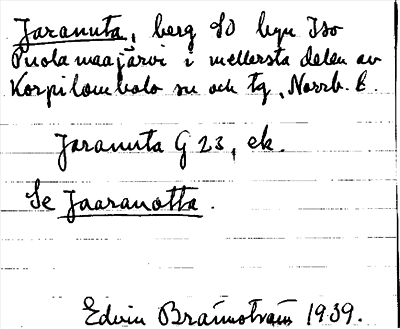 Jaranuta, berg SO byn Iso
Puolamaajärvi i mellersta delen av
Korpilombolo sn och tg, Norrb. l.
Jaranuta G 23, ek.
Se Jaaranotta.
Edvin Brännström 1939.